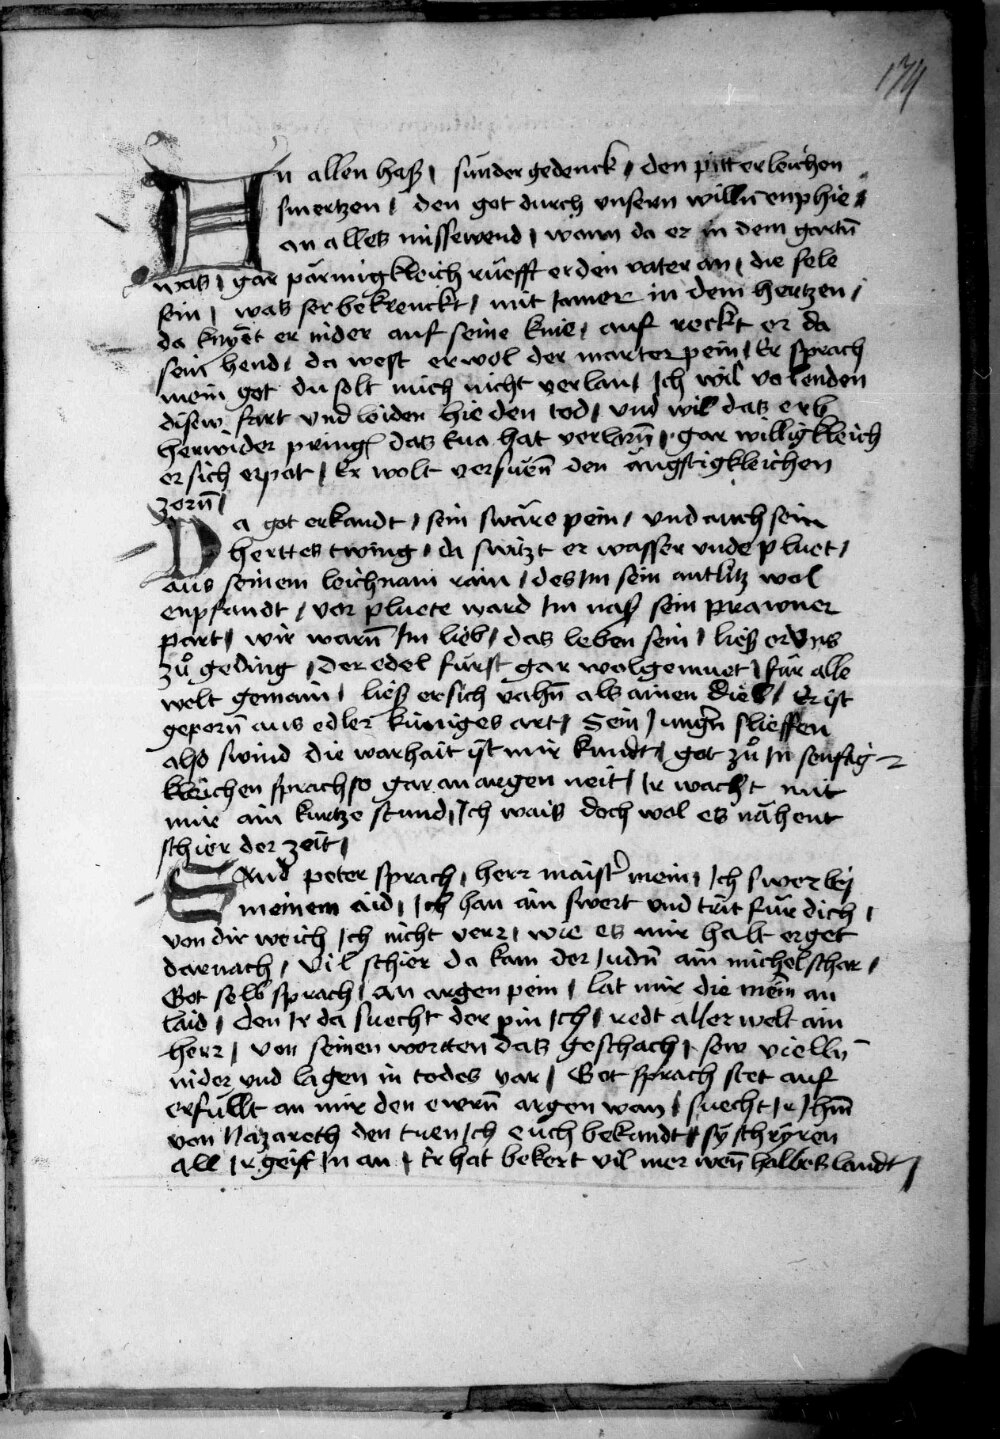 174
An allen haß / sunder gedenck / den pitterleichen
smertzen / den got durch unsern willn enphie /
an alles missewend / wann da er in dem gartn̄
was / gar pärmigkleich rüefft er den vater an / die sele
sein / was ser bekrenckt / mit Iamer in dem hertzen /
da knyet er nider auf seine knie / auf reckt er da
sein hend / da west er wol der marter pein / Er sprach
mein got du solt mich nicht verlan / Ich wil volenden
disew fart und leiden hie den tod / und wil das erb
herwider pringn das Eua hat verlorn̄ / gar willigkleich
er sich erpot / Er wolt versuen̄ den ängstigkleichen
zorn̄ /
Da got erkandt / sein swäre pein / und auch sein
herttes twing / da switzt er wasser unde pluet /
aus seinem leichnam rain / des Im sein antlitz wol
enpfandt / vor pluete ward Im naß sein prawner
part / wir warn̄ Im lieb / das leben sein / ließ er vns
zů geding / der edel fürst gar wolgemuet / für alle
welt gemain / ließ er sich vahn̄ als ainen dieb / Er ist
geporn̄ aus edler küniges art / Sein Jungern slieffen
also swind die warhait ist mir kundt / got zů In senftig-
kleichen sprach so gar an argen neit / Ir wacht mit
mir ain kurtze stund / Ich waiß doch wol es nähent
schier der zeit /
Sand peter sprach / herr maister mein / Ich swer bey
meinem aid / Ich han ain swert und trit für dich /
von dir weich Ich nicht verr / wie es mir halt erget
darnach / vil schier da kam der Judn̄ ain michel schar /
Got selb sprach / an argen pein / lat mir die mein an
laid / den Ir da suecht der pin Ich / redt aller welt ain
herr / von seinen wortten das geschach / sew vielln̄
nider und lagen in todes var / Got sprach stet auf
erfüllt an mir den ewrn̄ argen wan / suecht Ir Jhm̄
von Nazareth den tuen Ich euch bekandt / sy schryren
all Ir geist In an / Er hat bekert vil mer wen̄ halbes landt /